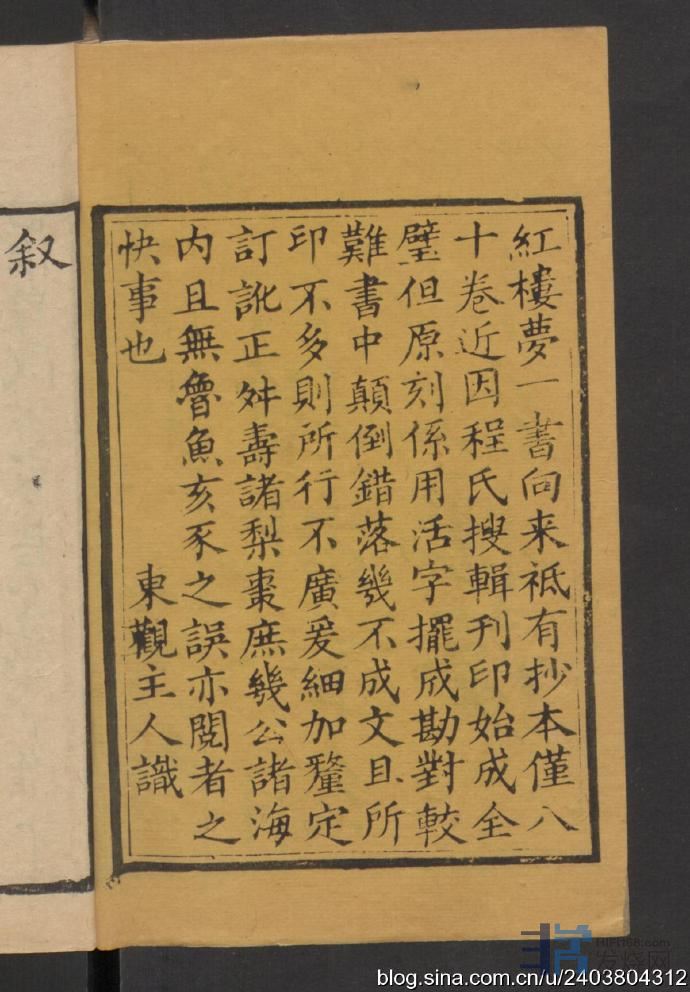 紅樓夢一書向来祗有抄本僅八
十卷近因程氏搜輯刊印始成全
璧但原刻係用活字擺成勘對較
難書中顛倒錯落幾不成文且所
印不多則所行不廣爰細加釐定
訂訛正舛壽諸梨棗庶幾公諸海
内且無魯魚亥豕之誤亦閱者之
快事也
東觀主人識
叙
HIFI168.com
发烧网
blog.sina.com.cn/u/2403804312